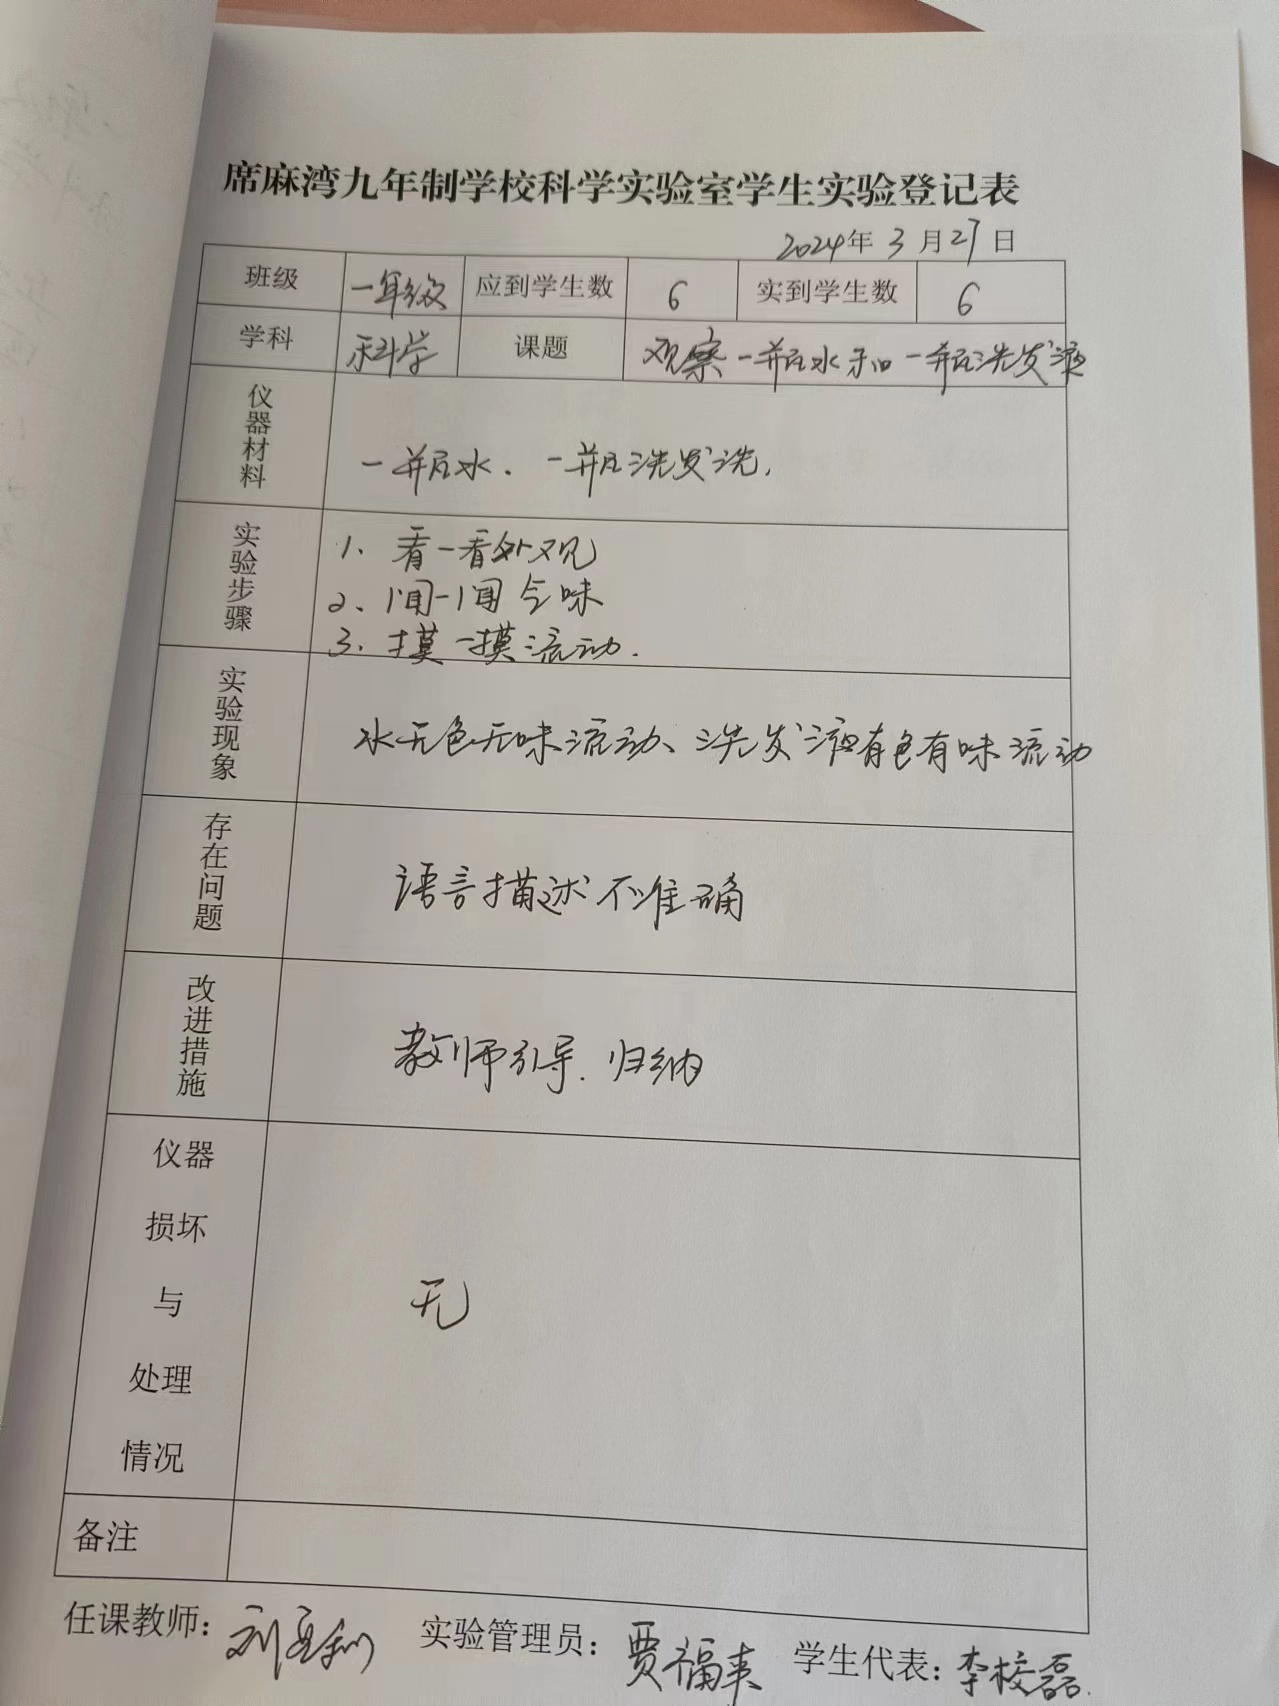 席麻湾九年制学校科学实验室学生实验登记表
2024年 3 月 27 日
班级 一年级 应到学生数 6 实到学生数 6
学科 科学 课题 观察一瓶水和一瓶洗发液
仪器材料 一瓶水. 一瓶洗发洗.
实验步骤 1、看一看外观
2、闻一闻气味
3、摸一摸流动.
实验现象 水无色无味流动、洗发液有色有味流动
存在问题 语言描述不准确
改进措施 教师引导.归纳
仪器
损坏
与
无
处理
情况
备注
任课教师: 实验管理员: 贾福来 学生代表: 李校磊